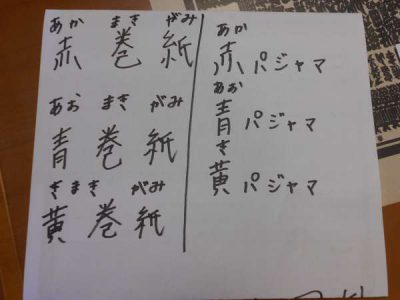 あか まき がみ
赤 巻 紙
あお まき がみ
青 巻 紙
き まき がみ
黄 巻 紙
あか
赤 パジャマ
あお
青 パジャマ
き
黄 パジャマ